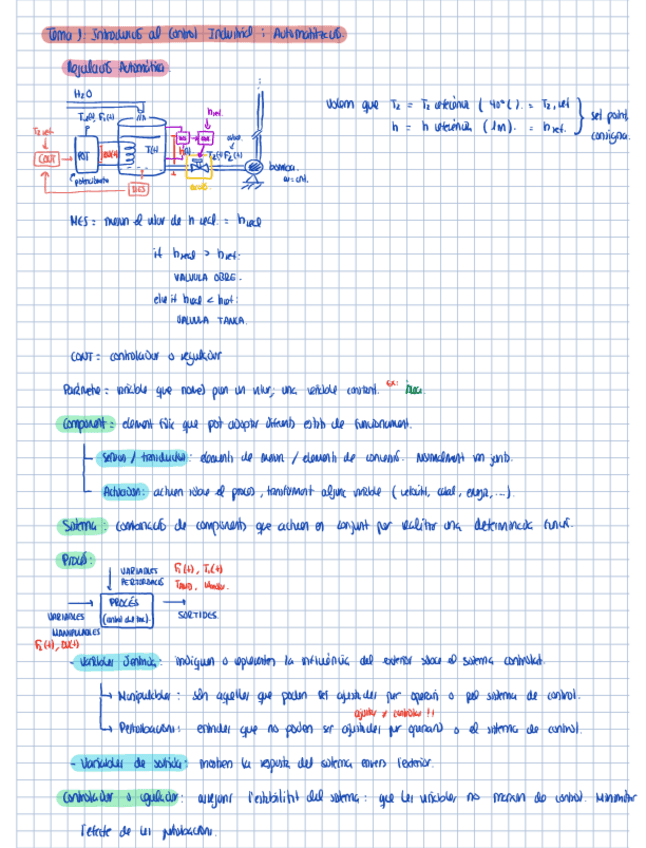 Tema 1: Introducció al Control Industrial i Automatització.
Regulació Automàtica
H2O
Volem que T2 = T2 interior (40°C). = T2,ref
h = h interior (1m). = href.
set point
consigna
href.
T2 ref.
CONT
POT
T(t)
potenciòmetre
MES
bomba.
MES: mesura el valor de h real. = hreal
if hreal > href:
VALVULA OBRE.
else if hreal < href:
VALVULA TANCA.
CONT: controlador o regulador
Paràmetre = variable que només pren un valor; una variable constant. ex:
Component: element físic que pot adoptar diferents estats de funcionament.
Sensors / transductors: elements de mesura / elements de conversió. Normalment van junts.
Actuadors: actuen sobre el procés, transformant alguna variable (velocitat, cabal, energia, ...).
Sistema: combinació de components que actuen en conjunt per realitzar una determinada funció.
Procés:
VARIABLES PERTORBACIÓ
F1(t), T1(t)
PROCÉS
SORTIDES.
VARIABLES MANIPULABLES
- Variables d'entrada: indiquen o representen la influència del exterior sobre el sistema controlat.
Manipulables: són aquelles que poden ser ajustades per operari o pel sistema de control.
ajustar ≠ controlar !!
Pertorbacions: entrades que no poden ser ajustades per operari o el sistema de control.
- Variables de sortida: mostren la resposta del sistema envers l'exterior.
Controlador o regulador: assegura l'estabilitat del sistema: que les variables no marxin de control. Minimitzar
l'efecte de les pertorbacions.